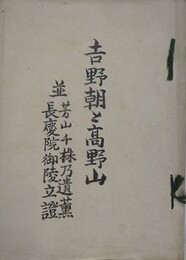 吉野朝と高野山
並 芳山千株乃遺薫
長慶院御陵立證